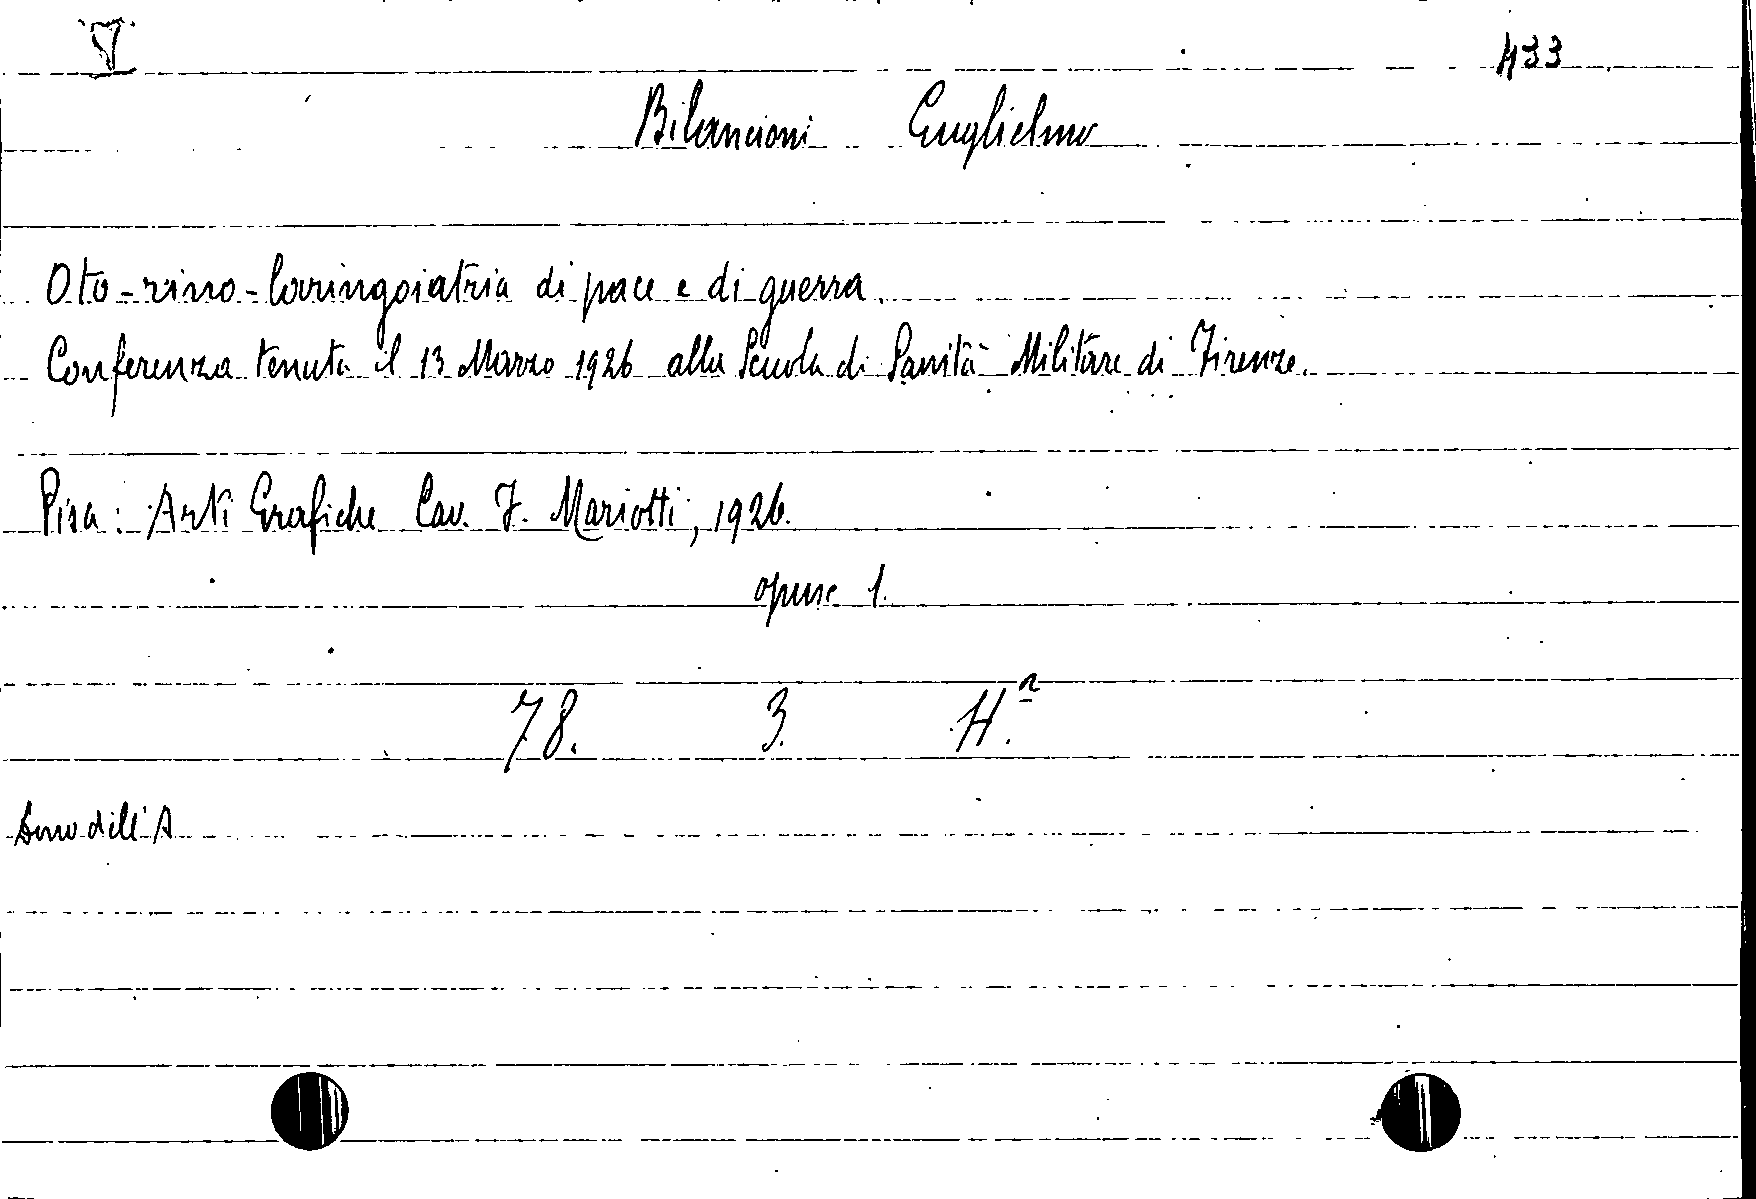 V 433
Bilancioni Guglielmo
Oto-rino-laringoiatria di pace e di guerra.
Conferenza tenuta il 13 Marzo 1926 alla Scuola di Sanità Militare di Firenze.
Pisa: Arti Grafiche Cav. F. Mariotti, 1926.
opusc 1.
78. 3. H.ª
Dono dell'A